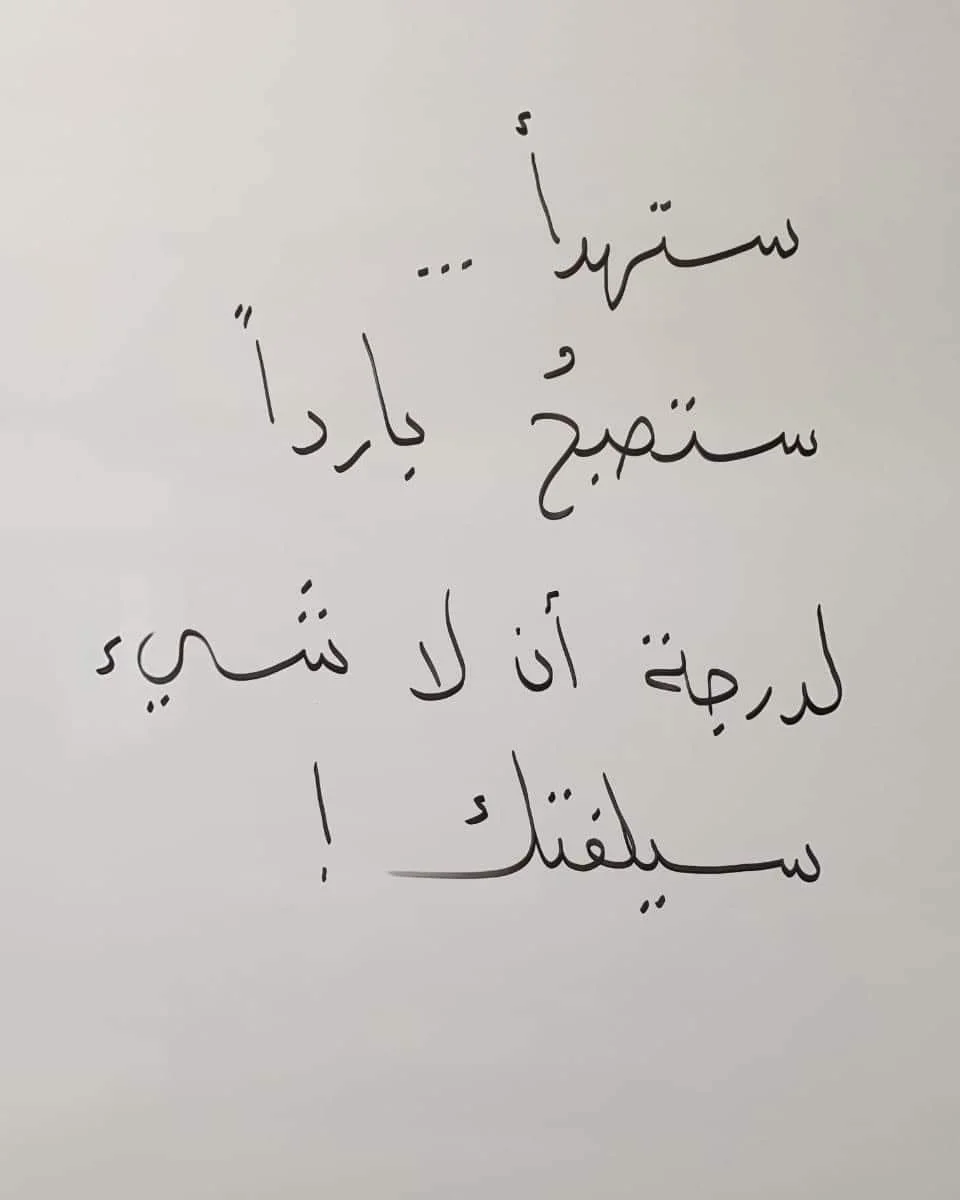 ستهدأ ...
ستصبحُ بارداً
لدرجة أن لا شيء
سيلفتك !